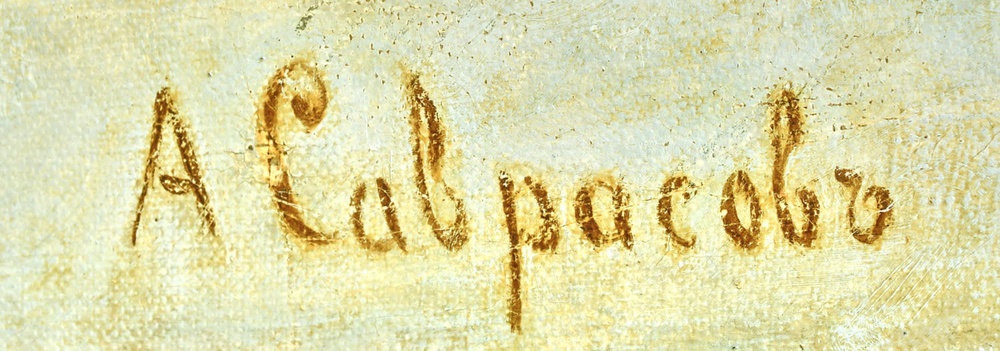 А Саврасовъ